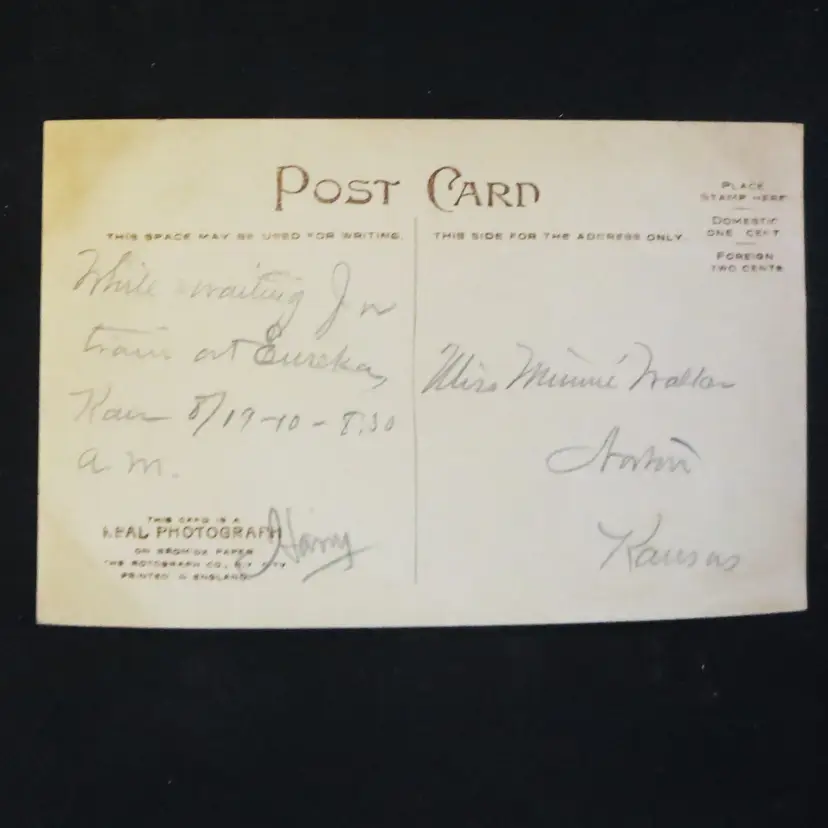 POST CARD
THIS SPACE MAY BE USED FOR WRITING.
THIS SIDE FOR THE ADDRESS ONLY
PLACE
STAMP HERE
DOMESTIC
ONE CENT
FOREIGN
TWO CENTS
While waiting for
train at Eureka,
Kan 8/19-10-8:30
a.m.
Harry
THIS CARD IS A
REAL PHOTOGRAPH
ON BROMIDE PAPER
THE ROTOGRAPH CO., N.Y. CITY
PRINTED IN ENGLAND
Miss Minnie Walker
Kansas